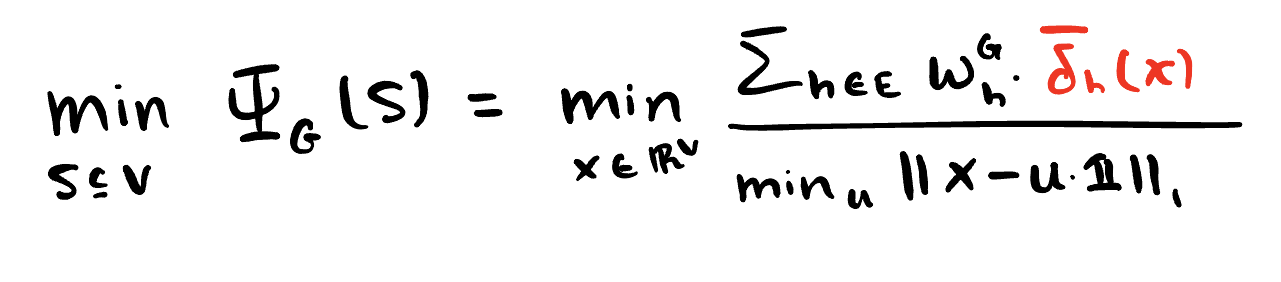 min_{S⊆V} Ψ_G(S) = min_{x∈ℝ^V} \frac{∑_{h∈E} w_h^G · \overline{δ}_h(x)}{min_u ||x − u·𝟙||_1}